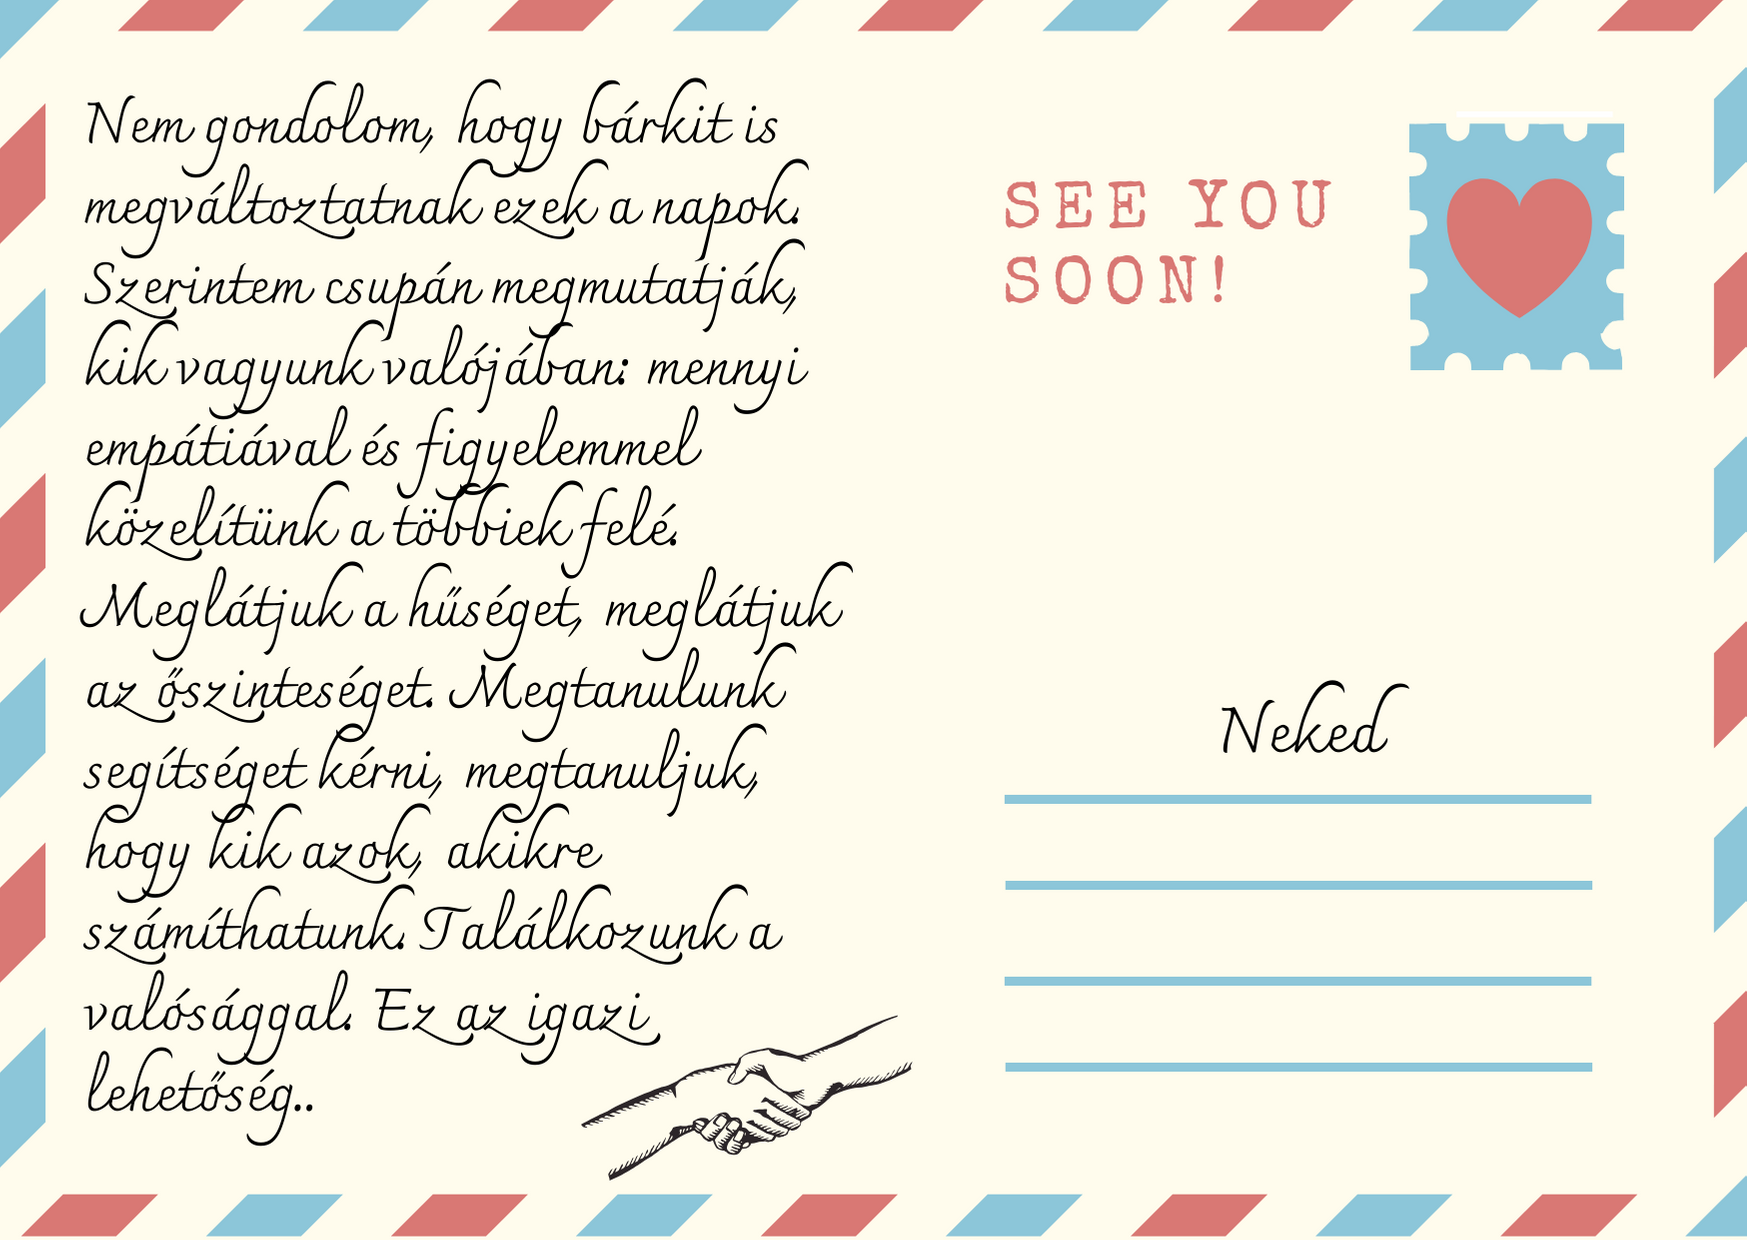 Nem gondolom, hogy bárkit is
megváltoztatnak ezek a napok.
Szerintem csupán megmutatják,
kik vagyunk valójában: mennyi
empátiával és figyelemmel
közelítünk a többiek felé.
Meglátjuk a hűséget, meglátjuk
az őszinteséget. Megtanulunk
segítséget kérni, megtanuljuk,
hogy kik azok, akikre
számíthatunk. Találkozunk a
valósággal. Ez az igazi
lehetőség..
SEE YOU
SOON!
Neked